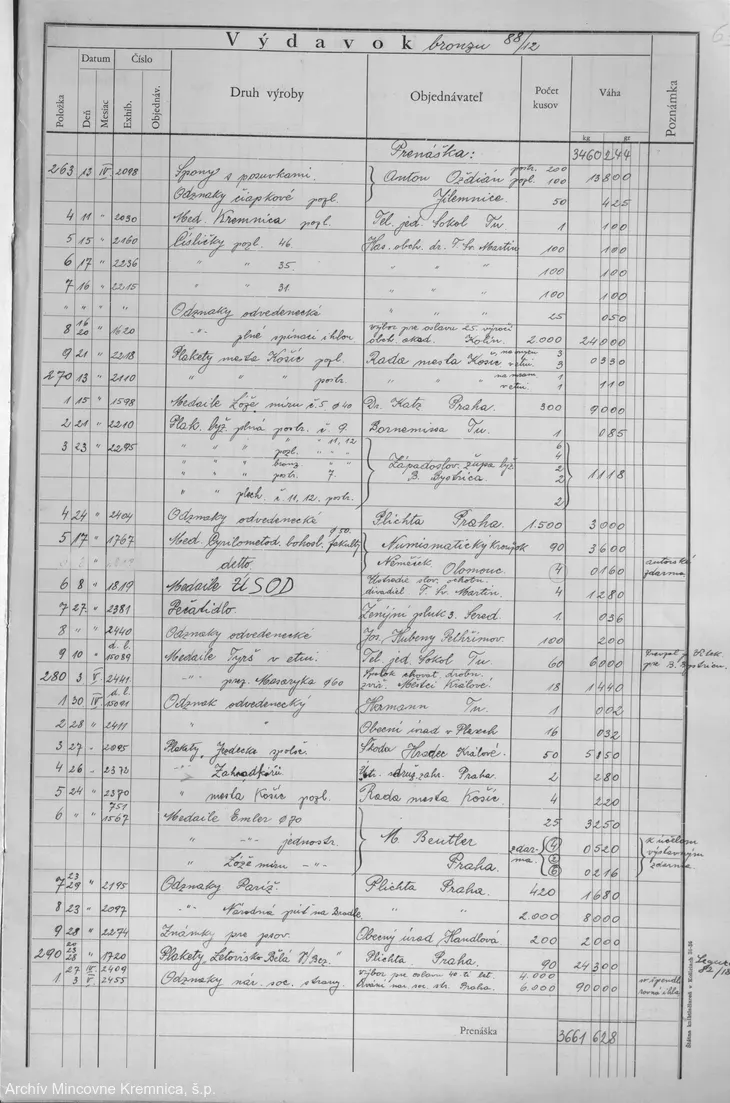 Výdavok bronzu 88/12
Položka Datum Deň Mesiac Číslo Exhib. Objednáv. Druh výroby Objednávateľ Počet kusov Váha kg gr Poznámka
Prenáška: 3460 244
263 13 IV. 2098 Spony s posuvkami. Anton Oždián postr. 200 pozl. 100 13 800
Odznaky čiapkové pozl. Jilemnice. 50 425
4 11 " 2030 Med. Kremnica pozl. Tel. jed. Sokol Tu 1 100
5 15 " 2160 Čísličky pozl. 46. Has. obch. dr. T. Sv. Martin 100 100
6 17 " 2236 " " 35. " " " 100 100
7 16 " 2215 " " 31. " " " 100 100
" " " " Odznaky odvedenecké " " 25 050
8 16 20 " 1620 -"- plné spínací výbor pre oslavu 25. výročí obch. akad. Kolín. 2.000 24 000
9 21 " 2218 Plakety mesta Košíc pozl. Rada mesta Košíc v etui. 3 3 0330
270 13 " 2110 " " " postr. " " " v etui 1 1 110
1 15 " 1598 Medaile Lóže míru č. 5 φ 40 Dr. Katz Praha. 300 9 000
2 21 " 2210 Plak. lyž. plná postr. č. 9. Bornemissa Tu. 1 085
3 23 " 2295 " " " " 11, 12 6
" " pozl. " " " 4
" " bronz " " Západoslov. župa lyž. 2 1118
" " postr. 7. B. Bystrica. 2
" " plech. č. 11, 12. postr. 2
4 24 " 2404 Odznaky odvedenecké Plichta Praha. 1.500 3 000
5 17 " 1767 Med. Cyrilometod. bohosl. fakulty φ 50. Numismatický krúžok 90 3 600
detto Němeček Olomouc. 4 0160 autorské zdarma
6 8 " 1819 Medaile ÚSOD Ústredie slov. ochotn. divadiel T. Sv. Martin. 4 1 280
7 27 " 2381 Pečatidlo Ženijní pluk 3. Sereď. 1. 036
8 " " 2440 Odznaky odvedenecké Jos. Hubený Pelhřimov. 100 200
9 10 " d. l. 15089 Medaile Tyrš v etui. Tel. jed. Sokol Tu. 60 6 000
280 3 V. 2441 -"- prez. Masaryka φ 60 Spolok chovat. drobn. zvír. Městec Králové. 18 1 440
1 30 IV. d. l. 15091 Odznak odvedenecký Hermann Tu. 1 002
2 28 " 2411 " " Obecní úrad v Plasech 16 032
3 27 " 2095 Plakety Jezdecká společ. Škoda Hradec Králové. 50 5 150
4 26 " 2372 -"- Zahradkářů Ústr. druž. zahr. Praha. 2 280
5 24 " 2370 " mesta Košíc pozl. Rada mesta Košíc 4 220
6 " " 751 1567 Medaile Emler φ 70 25 3250
" -"- jednostr. M. Beutler zdarma 4 0520 k účelom výstavným zdarma
" Lóže míru -"- Praha. 2 6 0216
7 23 29 " 2195 Odznaky Paríž. Plichta Praha. 420 1 680
8 23 " 2097 -"- Národná púť na Bradle " " 2.000 8000
9 28 " 2274 Známky pre psov. Obecný úrad Handlová 200 2 000
290 20 23 28 " 1720 Plakety "Letovisko Bílá v/Bez." Plichta Praha. 90 24 300
1 27 3 IV. V. 2409 2455 Odznaky nár. soc. strany. Výbor pre oslavu 40. ti let. trvání nár. soc. str. Praha. 4.000 6.000 90 000
Prenáška 3661 628
Archív Mincovne Kremnica, š.p.